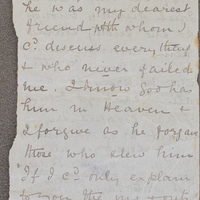 he was my dearest
friend with whom I
cd. discuss everything
& who never failed
me. I know God has
him in Heaven &
I forgive as he forgave
those who slew him
"If I cd. only explain
to you the